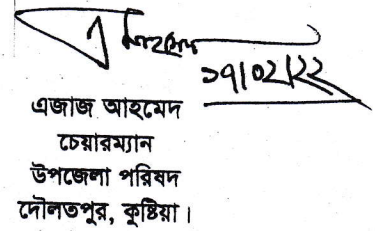 ১৭/০২/২২
এজাজ আহমেদ
চেয়ারম্যান
উপজেলা পরিষদ
দৌলতপুর, কুষ্টিয়া।